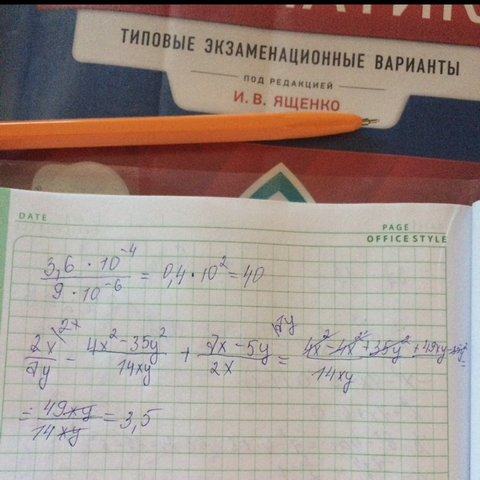 АТИК
ТИПОВЫЕ ЭКЗАМЕНАЦИОННЫЕ ВАРИАНТЫ
ПОД РЕДАКЦИЕЙ
И. В. ЯЩЕНКО
DATE
PAGE
OFFICE STYLE
3,6 · 10^-4 / 9 · 10^-6 = 0,4 · 10^2 = 40
2x/7y \2x - 4x^2 - 35y^2 / 14xy + 7x - 5y / 2x \7y = 4x^2 - 4x^2 + 35y^2 + 49xy - 35y^2 / 14xy =
= 49xy / 14xy = 3,5